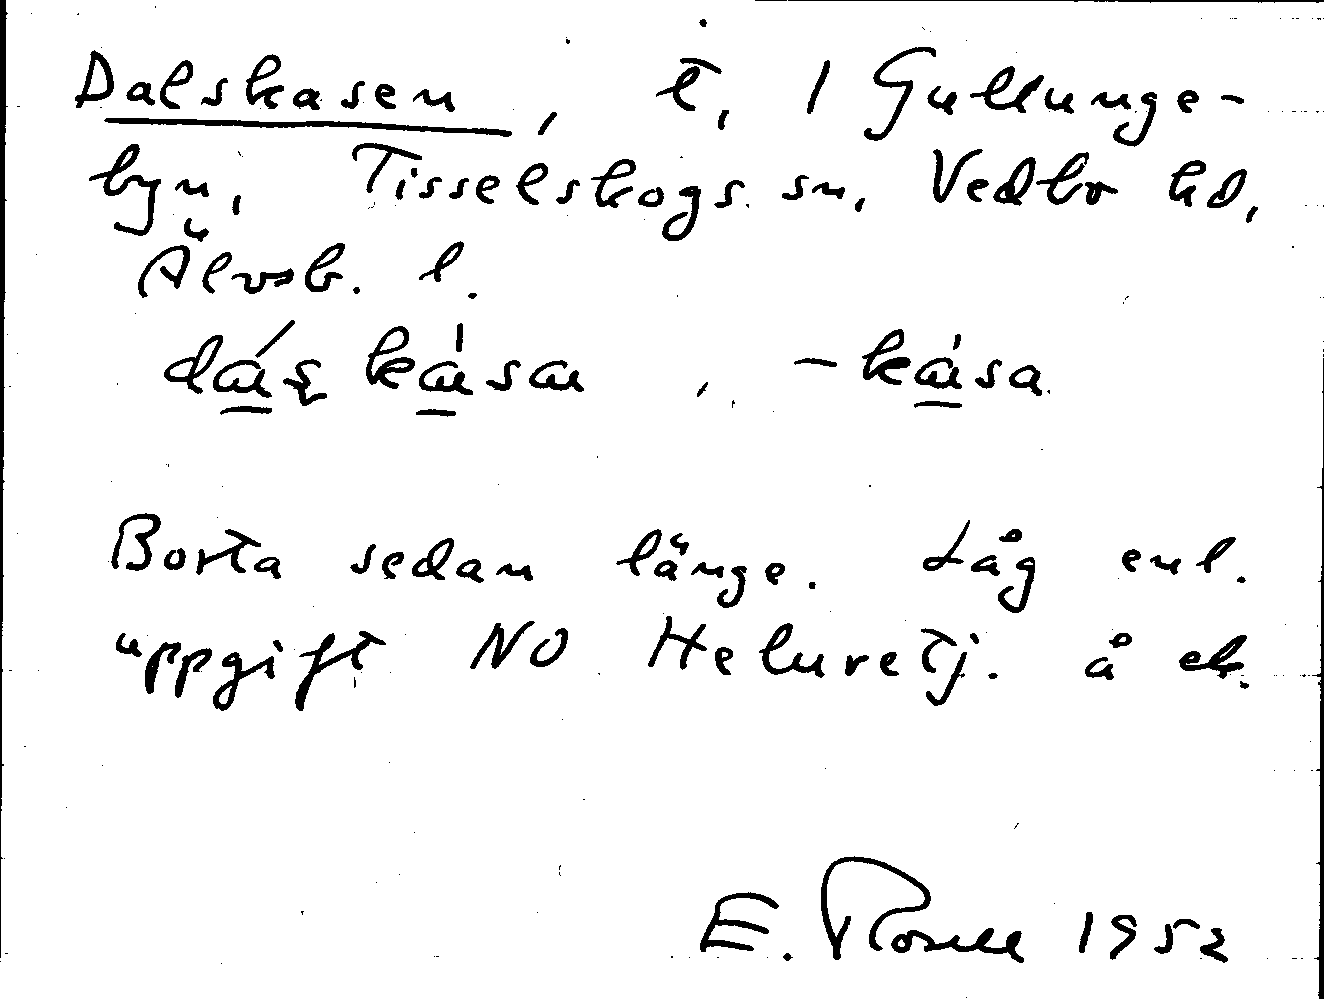 Dalskasen, t, 1 Gullunge-
byn, Tisselskogs sn, Vedbo hd,
Älvsb. l.
dáʂ kása, -kása
Borta sedan länge. Låg enl.
uppgift NO Helvetetj. å ek.
E. Rosell 1952